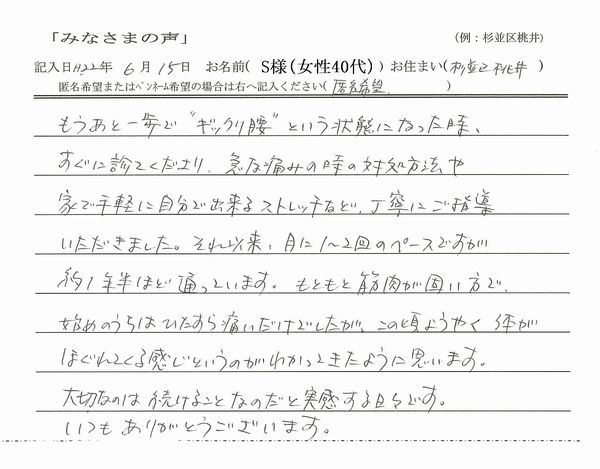 「みなさまの声」 (例：杉並区桃井)
記入日 H22年 6月 15日 お名前( S様(女性40代) ) お住まい( 杉並区桃井 )
匿名希望またはペンネーム希望の場合は右へ記入ください( 匿名希望 )
もうあと一歩で"ギックリ腰"という状態になった時、
すぐに診てくださり、急な痛みの時の対処方法や
家で手軽に自分で出来るストレッチなど、丁寧にご指導
いただきました。それ以来、月に1〜2回のペースですが
約1年半ほど通っています。もともと筋肉が固い方で、
始めのうちはひたすら痛いだけでしたが、この頃ようやく体が
ほぐれてくる感じというのがわかってきたように思います。
大切なのは続けることなのだと実感する日々です。
いつもありがとうございます。